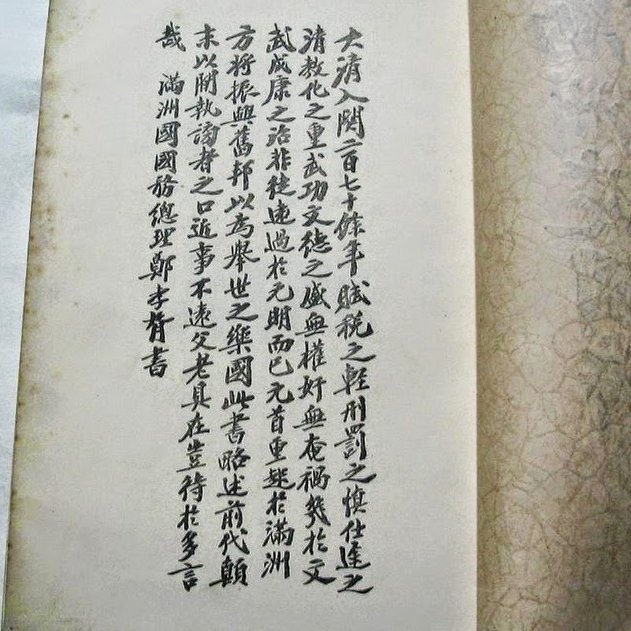 大清入關二百七十餘年賦稅之輕刑罰之慎仕進之
清教化之重武功文德之盛無權奸無奄禍幾於文
武成康之治非徒遠過於元明而已元首重興於滿洲
方將振興舊邦以為舉世之樂國此書略述前代顛
末以開執謗者之口近事不遠父老具在豈待於多言
哉 滿洲國國務總理鄭孝胥書